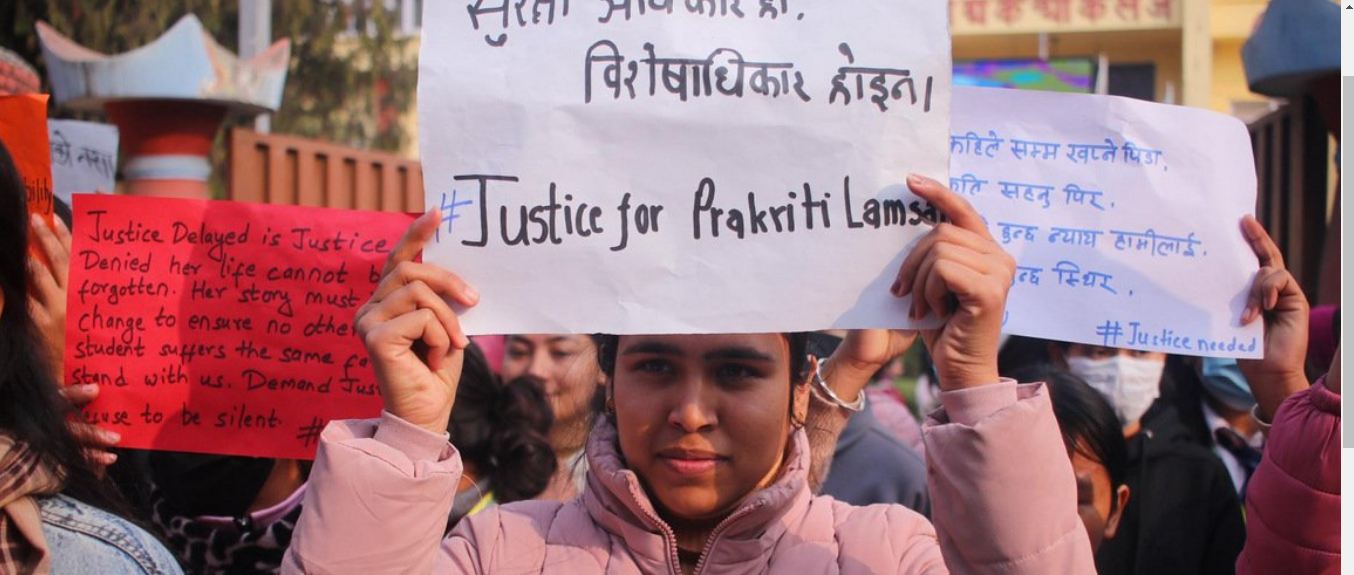 सुरक्षा अधिकार हो.
विशेषाधिकार होइन।
#Justice for Prakriti Lamsa
Justice Delayed is Justice
Denied her life cannot b
forgotten. Her story must
change to ensure no othe
student suffers the same fa
stand with us. Demand Jus
to be silent. #
कहिले सम्म खप्ने पिडा,
कति सहनु पिर.
हुन्छ न्याय हामीलाई.
स्थिर.
#Justice needed